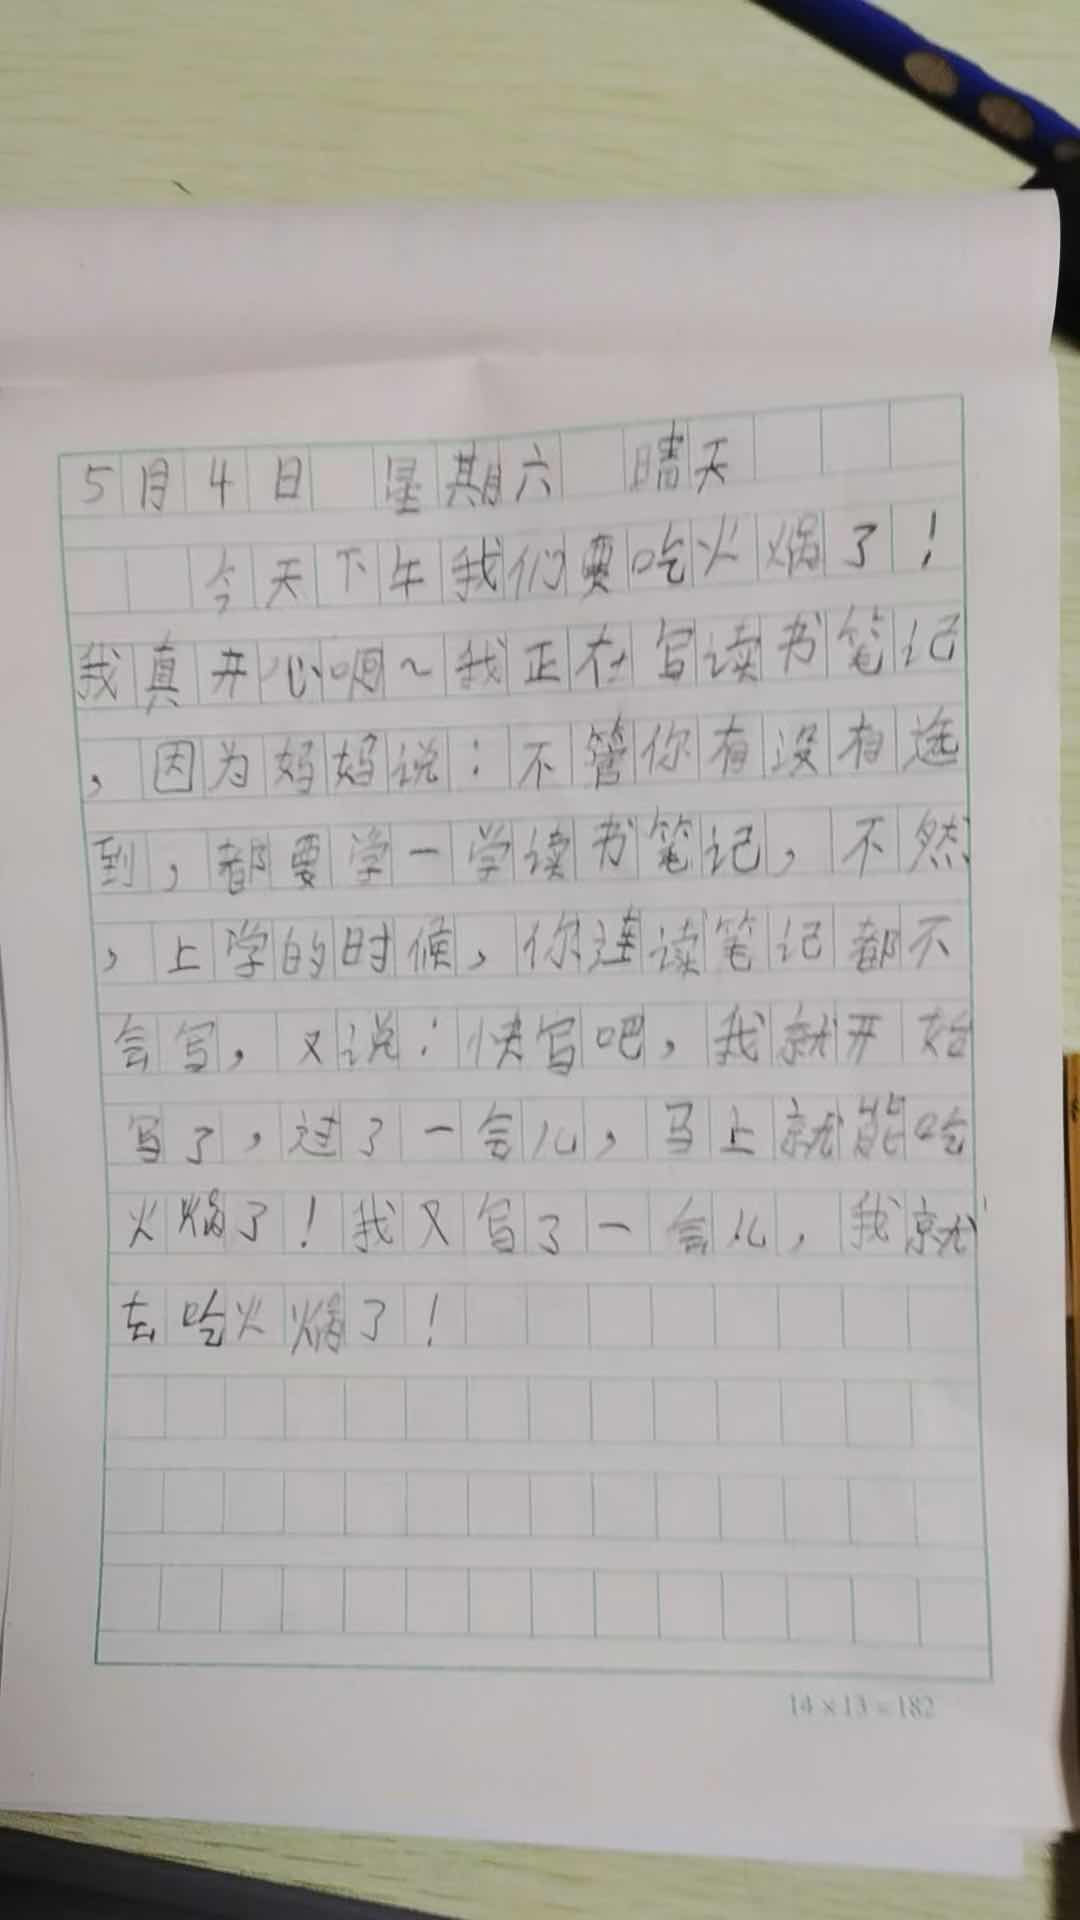 5月4日 星期六 晴天
今天下午我们要吃火锅了！
我真开心呀～我正在写读书笔记
，因为妈妈说：不管你有没有选
到，都要学一学读书笔记，不然
，上学的时候，你连读笔记都不
会写，又说：快写吧，我就开始
写了，过了一会儿，马上就能吃
火锅了！我又写了一会儿，我就
去吃火锅了！
14×13=182